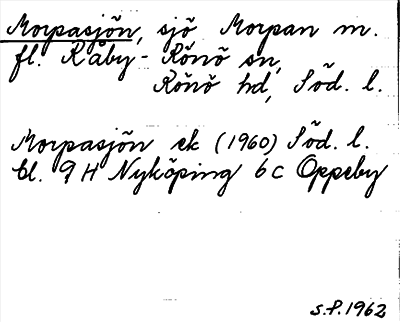 Morpasjön, sjö Morpan m.
fl. Råby-Rönö sn,
Rönö hd, Söd. l.
Morpasjön ek (1960) Söd. l.
bl. 9 H Nyköping 6 c Oppeby
S.P. 1962